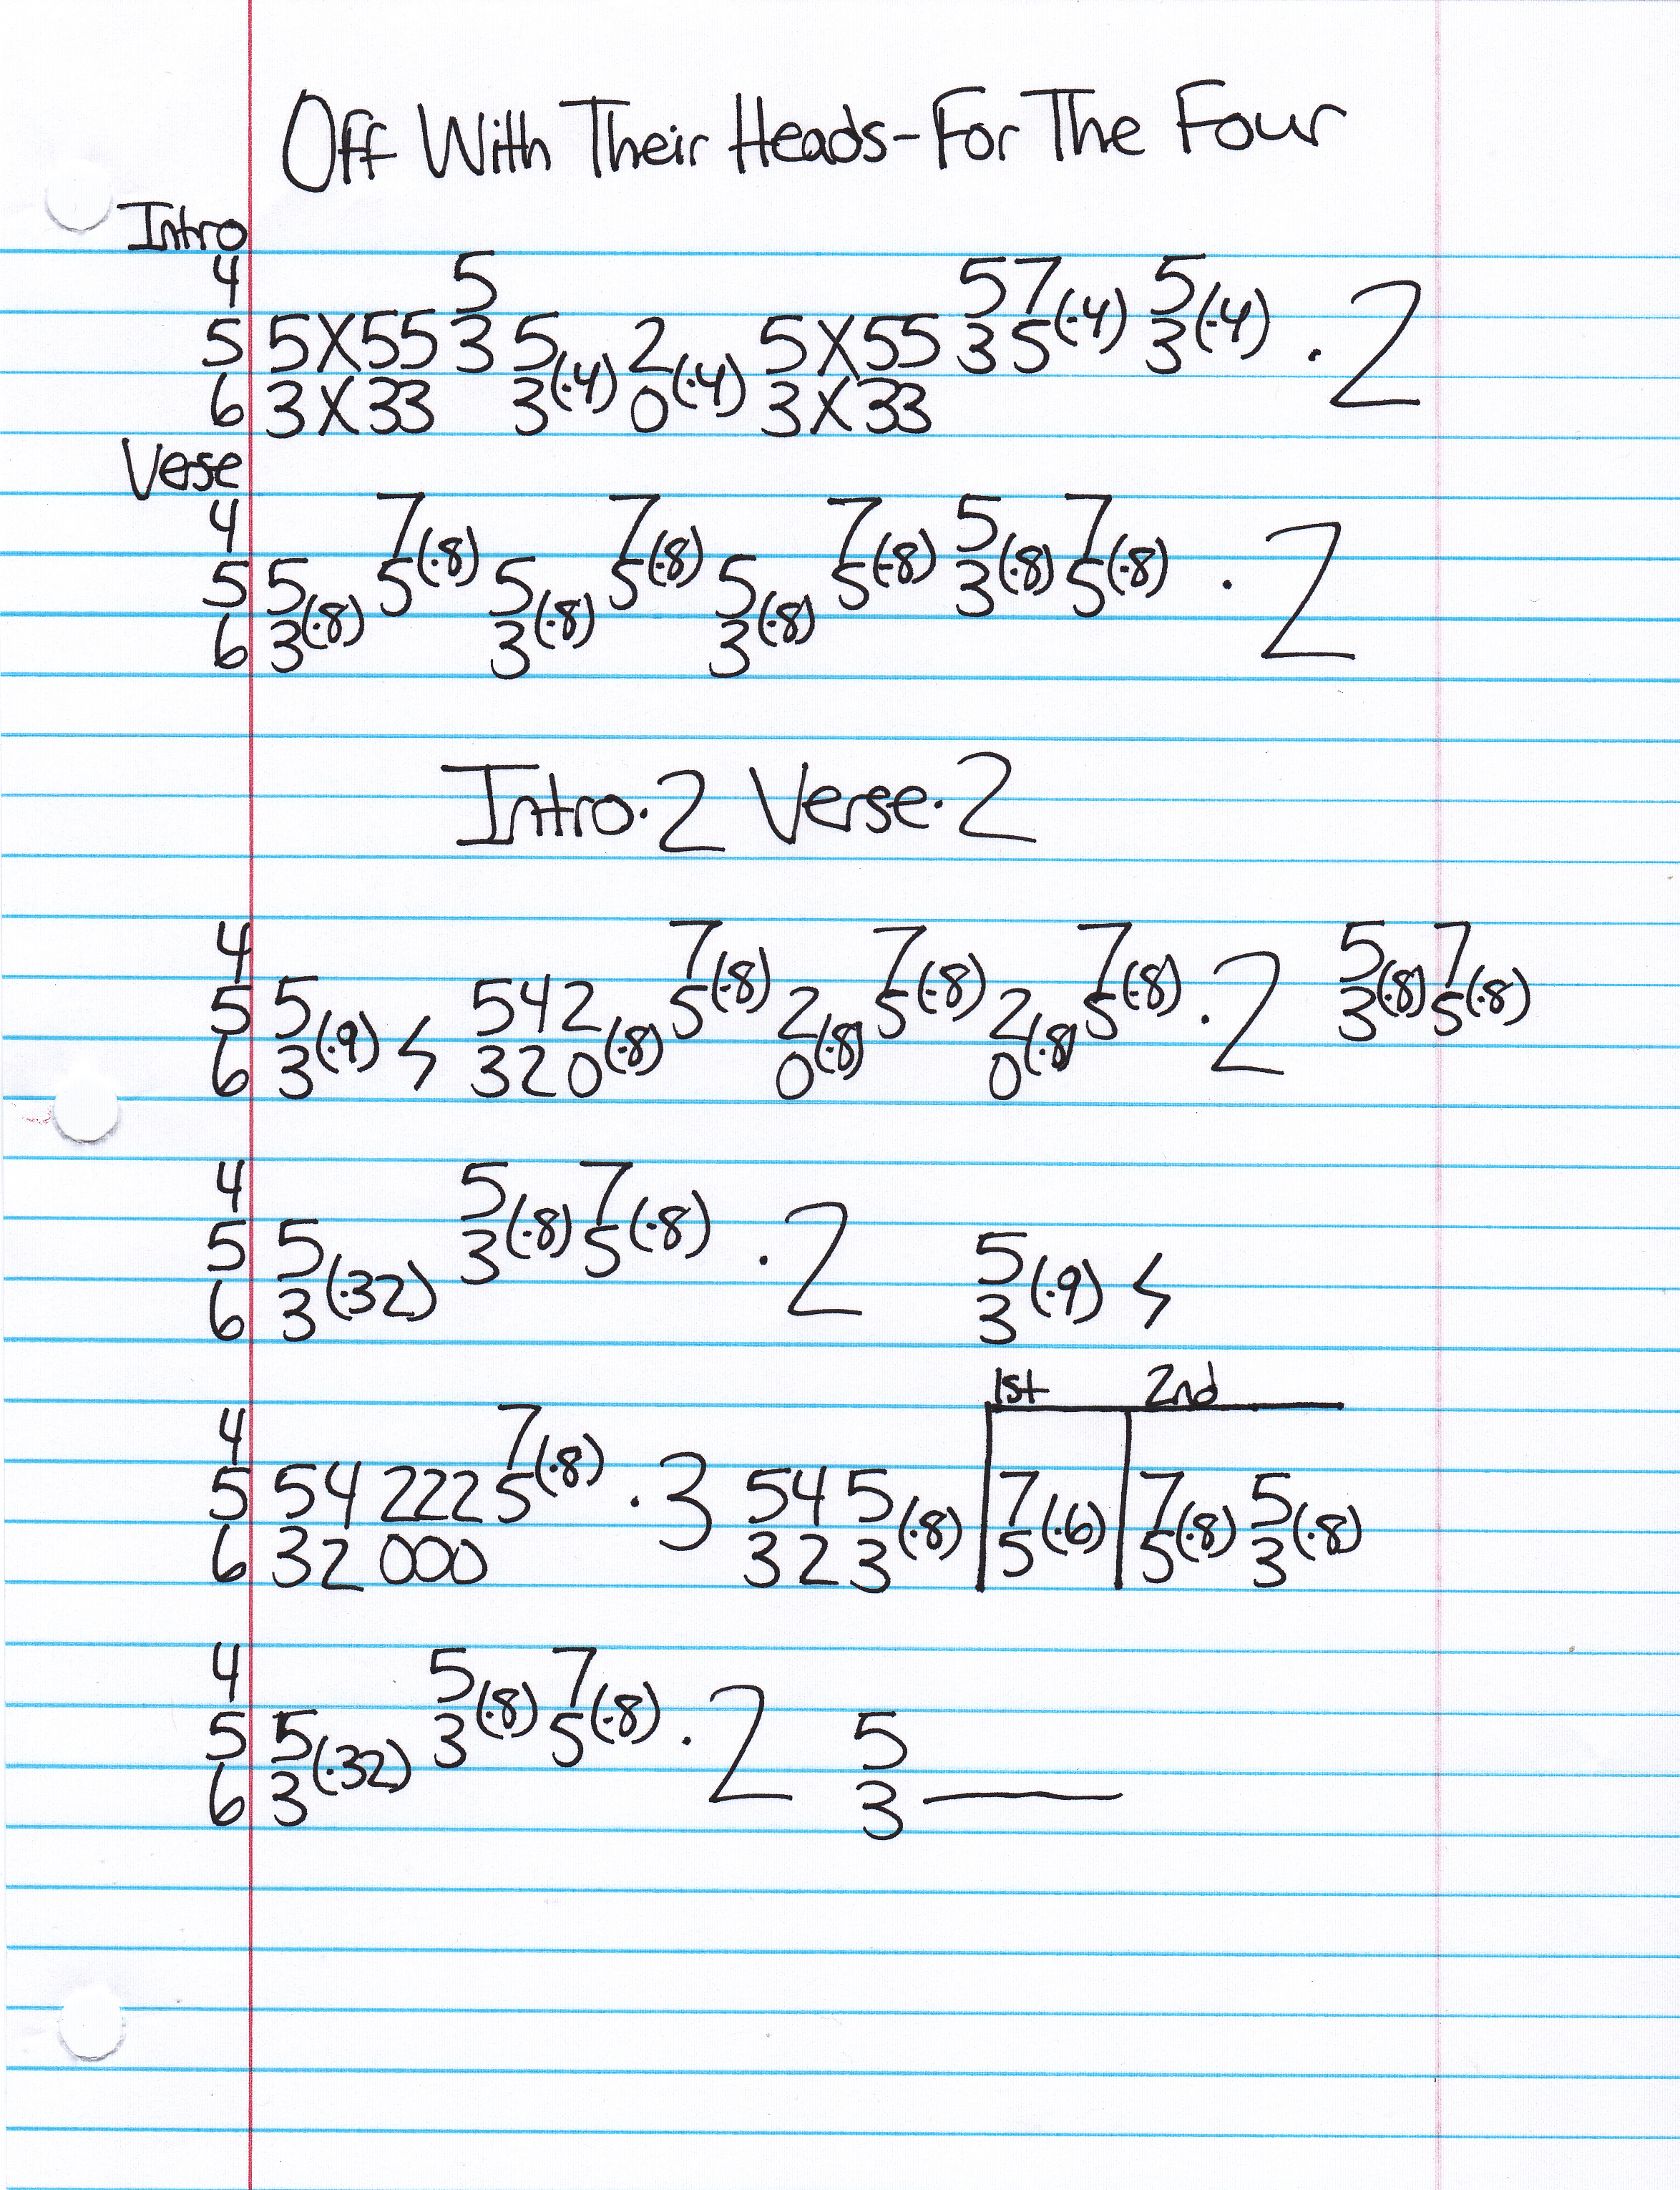 Off With Their Heads-For The Four
Intro
4 5 57(·4) 5(·4)
5 5X55 3 5 2 5X55 35 3 · 2
6 3X33 3(·4) 0(·4) 3X33
Verse
4 7(·8) 7(·8) 7(·8) 5(·8) 7(·8)
5 5 5 5 5 5 5 3 5 · 2
6 3(·8) 3(·8) 3(·8)
Intro·2 Verse·2
4 7(·8) 7(·8) 7(·8) 5(·8) 7(·8)
5 5 542 5 2 5 2 5 · 2 3 5
6 3(·9) 320(·8) 0(·8) 0(·8)
4 5(·8) 7(·8)
5 5 3 5 · 2 5
6 3(·32) 3(·9)
1st 2nd
4 7(·8)
5 54 222 5 · 3 545 7 7 5
6 32 000 323(·8) 5(·6) 5(·8) 3(·8)
4 5(·8) 7(·8)
5 5 3 5 · 2 5
6 3(·32) 3